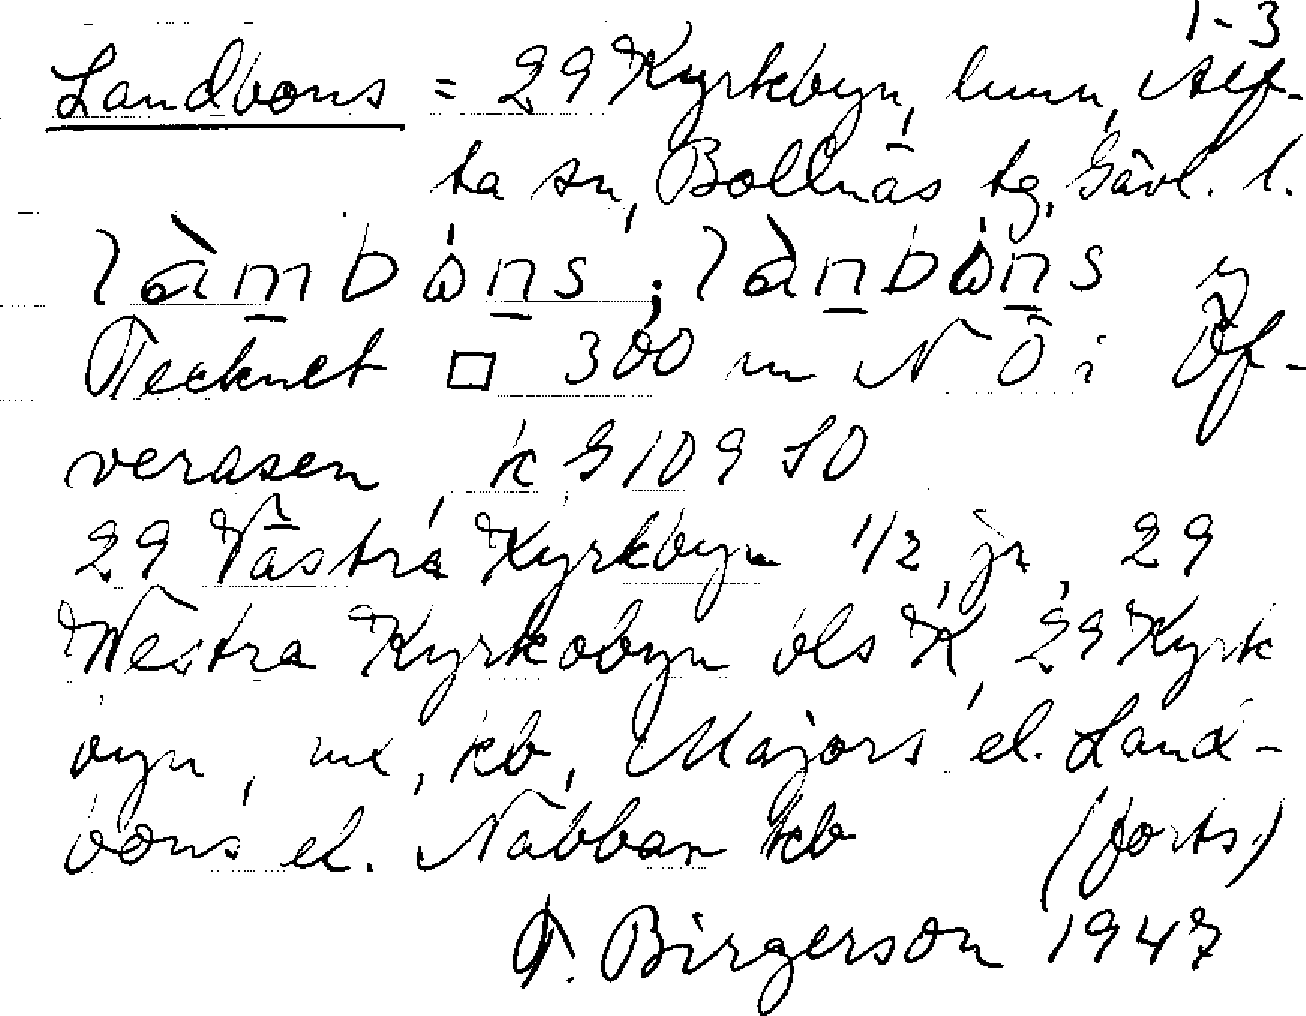 1-3
Landbons = 29 Kyrkbyn, hmn, Alf-
ta sn, Bollnäs tg, Gävl. l.
làmbòns ; lànbòns
Tecknet □ 300 m N Ö i Öf-
verasen, k G 109 SO
29 Västra Kyrkbyn 1/2, jr, 29
Westra Kyrkobyn vls K, 29 Kyrk
byn, ml, kb, Majors el. Land-
bons el. Nabban kb (forts.)
F. Birgerson 1947